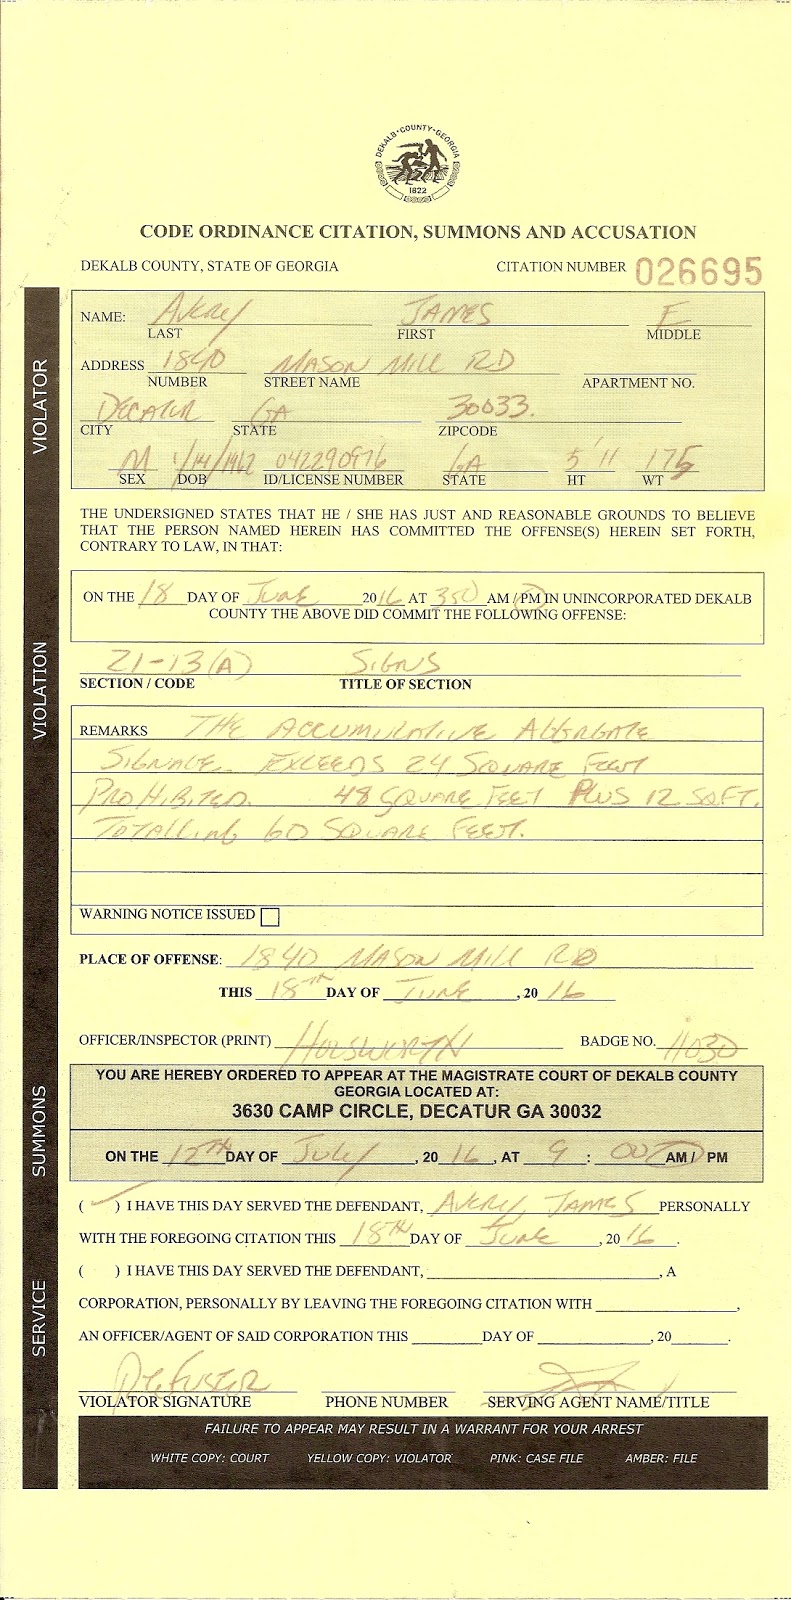 DEKALB·COUNTY·GEORGIA
1822
CODE ORDINANCE CITATION, SUMMONS AND ACCUSATION
DEKALB COUNTY, STATE OF GEORGIA CITATION NUMBER 026695
VIOLATOR
NAME: AVERY JAMES E
LAST FIRST MIDDLE
ADDRESS 1840 MASON MILL RD
NUMBER STREET NAME APARTMENT NO.
DECATUR GA 30033.
CITY STATE ZIPCODE
M 1/14/1962 042290976 GA 5'11 175
SEX DOB ID/LICENSE NUMBER STATE HT WT
THE UNDERSIGNED STATES THAT HE / SHE HAS JUST AND REASONABLE GROUNDS TO BELIEVE
THAT THE PERSON NAMED HEREIN HAS COMMITTED THE OFFENSE(S) HEREIN SET FORTH,
CONTRARY TO LAW, IN THAT:
VIOLATION
ON THE 18 DAY OF JUNE 2016 AT 350 AM / PM IN UNINCORPORATED DEKALB
COUNTY THE ABOVE DID COMMIT THE FOLLOWING OFFENSE:
21-13(A) SIGNS
SECTION / CODE TITLE OF SECTION
REMARKS THE ACCUMULATIVE AGGRGATE
SIGNAGE EXCEEDS 24 SQUARE FEET
PROHIBITED. 48 SQUARE FEET PLUS 12 SQ FT.
TOTALLING 60 SQUARE FEET.
WARNING NOTICE ISSUED
PLACE OF OFFENSE: 1840 MASON MILL RD
THIS 18TH DAY OF JUNE, 2016
OFFICER/INSPECTOR (PRINT) HOLSWORTH BADGE NO. 11030
SUMMONS
YOU ARE HEREBY ORDERED TO APPEAR AT THE MAGISTRATE COURT OF DEKALB COUNTY
GEORGIA LOCATED AT:
3630 CAMP CIRCLE, DECATUR GA 30032
ON THE 12TH DAY OF JULY, 2016, AT 9:00 AM / PM
SERVICE
( ✓ ) I HAVE THIS DAY SERVED THE DEFENDANT, AVERY, JAMES PERSONALLY
WITH THE FOREGOING CITATION THIS 18TH DAY OF JUNE, 2016.
( ) I HAVE THIS DAY SERVED THE DEFENDANT, , A
CORPORATION, PERSONALLY BY LEAVING THE FOREGOING CITATION WITH ,
AN OFFICER/AGENT OF SAID CORPORATION THIS DAY OF , 20 .
VIOLATOR SIGNATURE PHONE NUMBER SERVING AGENT NAME/TITLE
FAILURE TO APPEAR MAY RESULT IN A WARRANT FOR YOUR ARREST
WHITE COPY: COURT YELLOW COPY: VIOLATOR PINK: CASE FILE AMBER: FILE